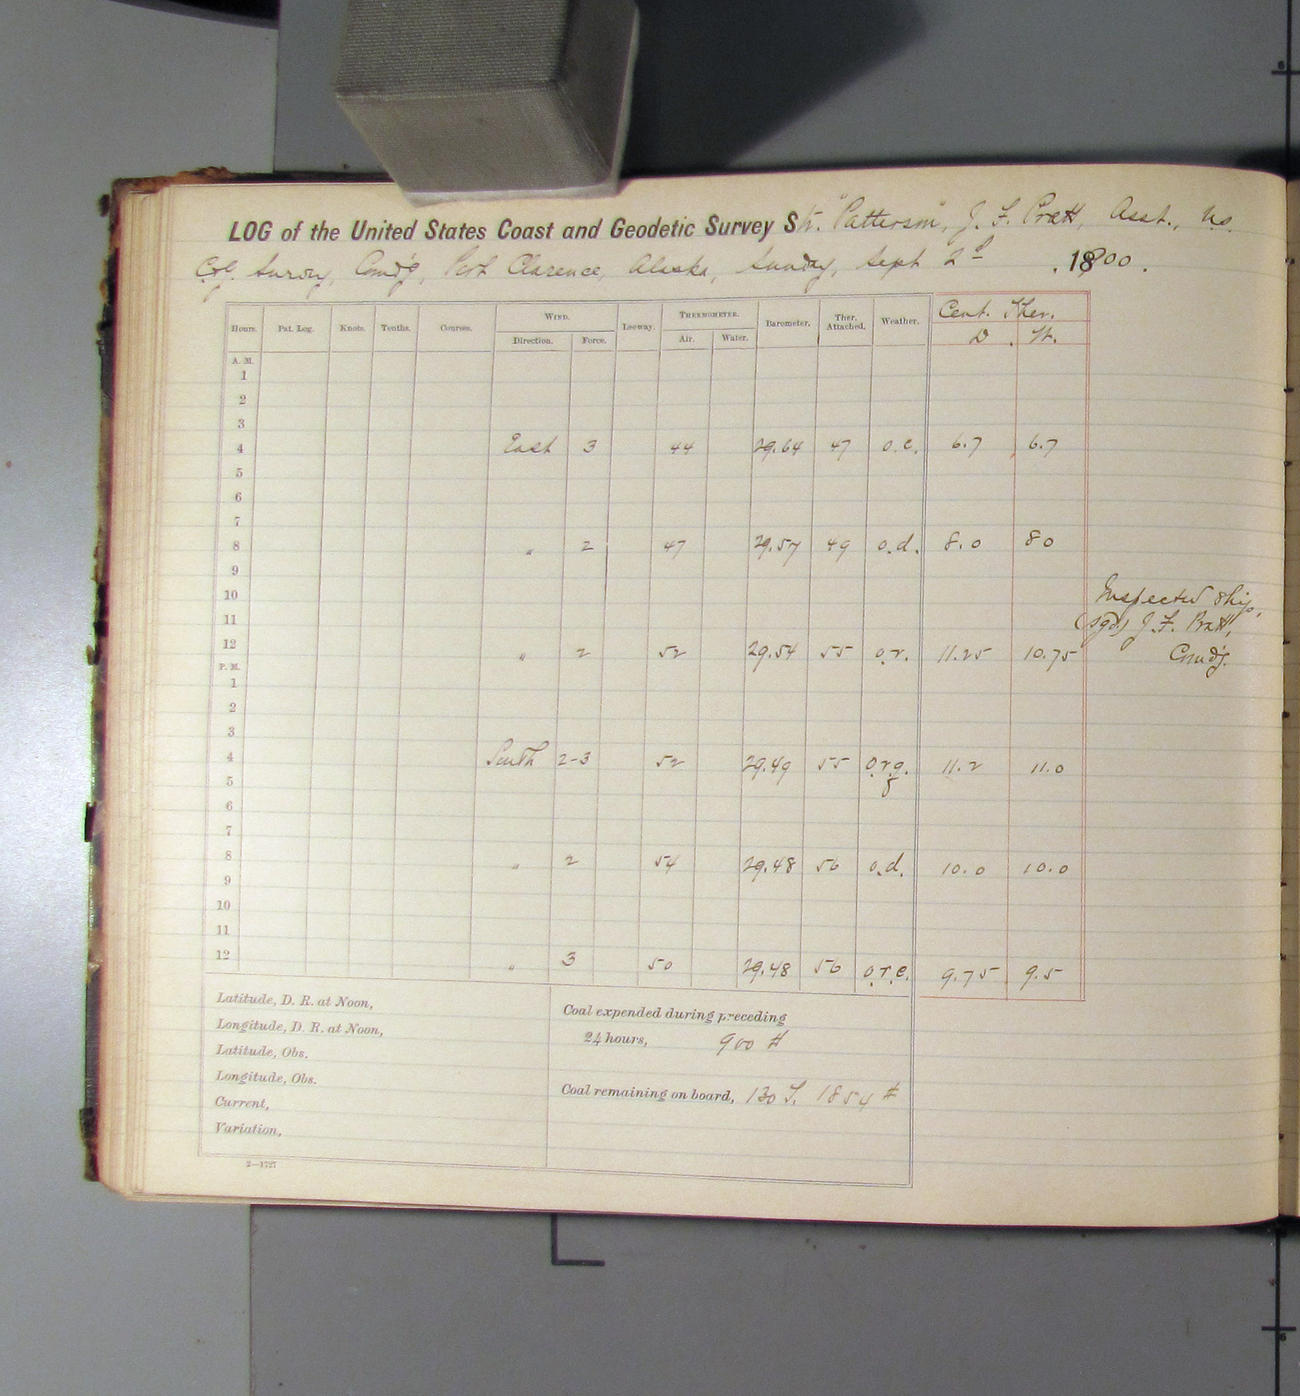 LOG of the United States Coast and Geodetic Survey Str. "Patterson", J. F. Pratt, Asst., U.S.
C.&G. Survey, Comd'g, Port Clarence, Alaska, Sunday, Sept 2d, 1900.
Hours. Pat. Log. Knots. Tenths. Courses. WIND. Leeway. THERMOMETER. Barometer. Ther. Attached. Weather. Cent. Ther.
Direction. Force. Air. Water. D. W.
A. M.
1
2
3
4 East 3 44 29.64 47 o.c. 6.7 6.7
5
6
7
8 " 2 47 29.57 49 o.d. 8.0 80
9
10 Inspected ship,
11 (sgd) J. F. Pratt,
12 " 2 52 29.54 55 o.r. 11.25 10.75 Comd'g.
P. M.
1
2
3
4 South 2-3 52 29.49 55 o.r.q. 11.2 11.0
5
6
7
8 " 2 54 29.48 56 o.d. 10.0 10.0
9
10
11
12 " 3 50 29.48 56 o.r.c. 9.75 9.5
Latitude, D. R. at Noon,
Longitude, D. R. at Noon,
Latitude, Obs.
Longitude, Obs.
Current,
Variation,
Coal expended during preceding
24 hours, 900 #
Coal remaining on board, 130 T. 1854 #
2—1727